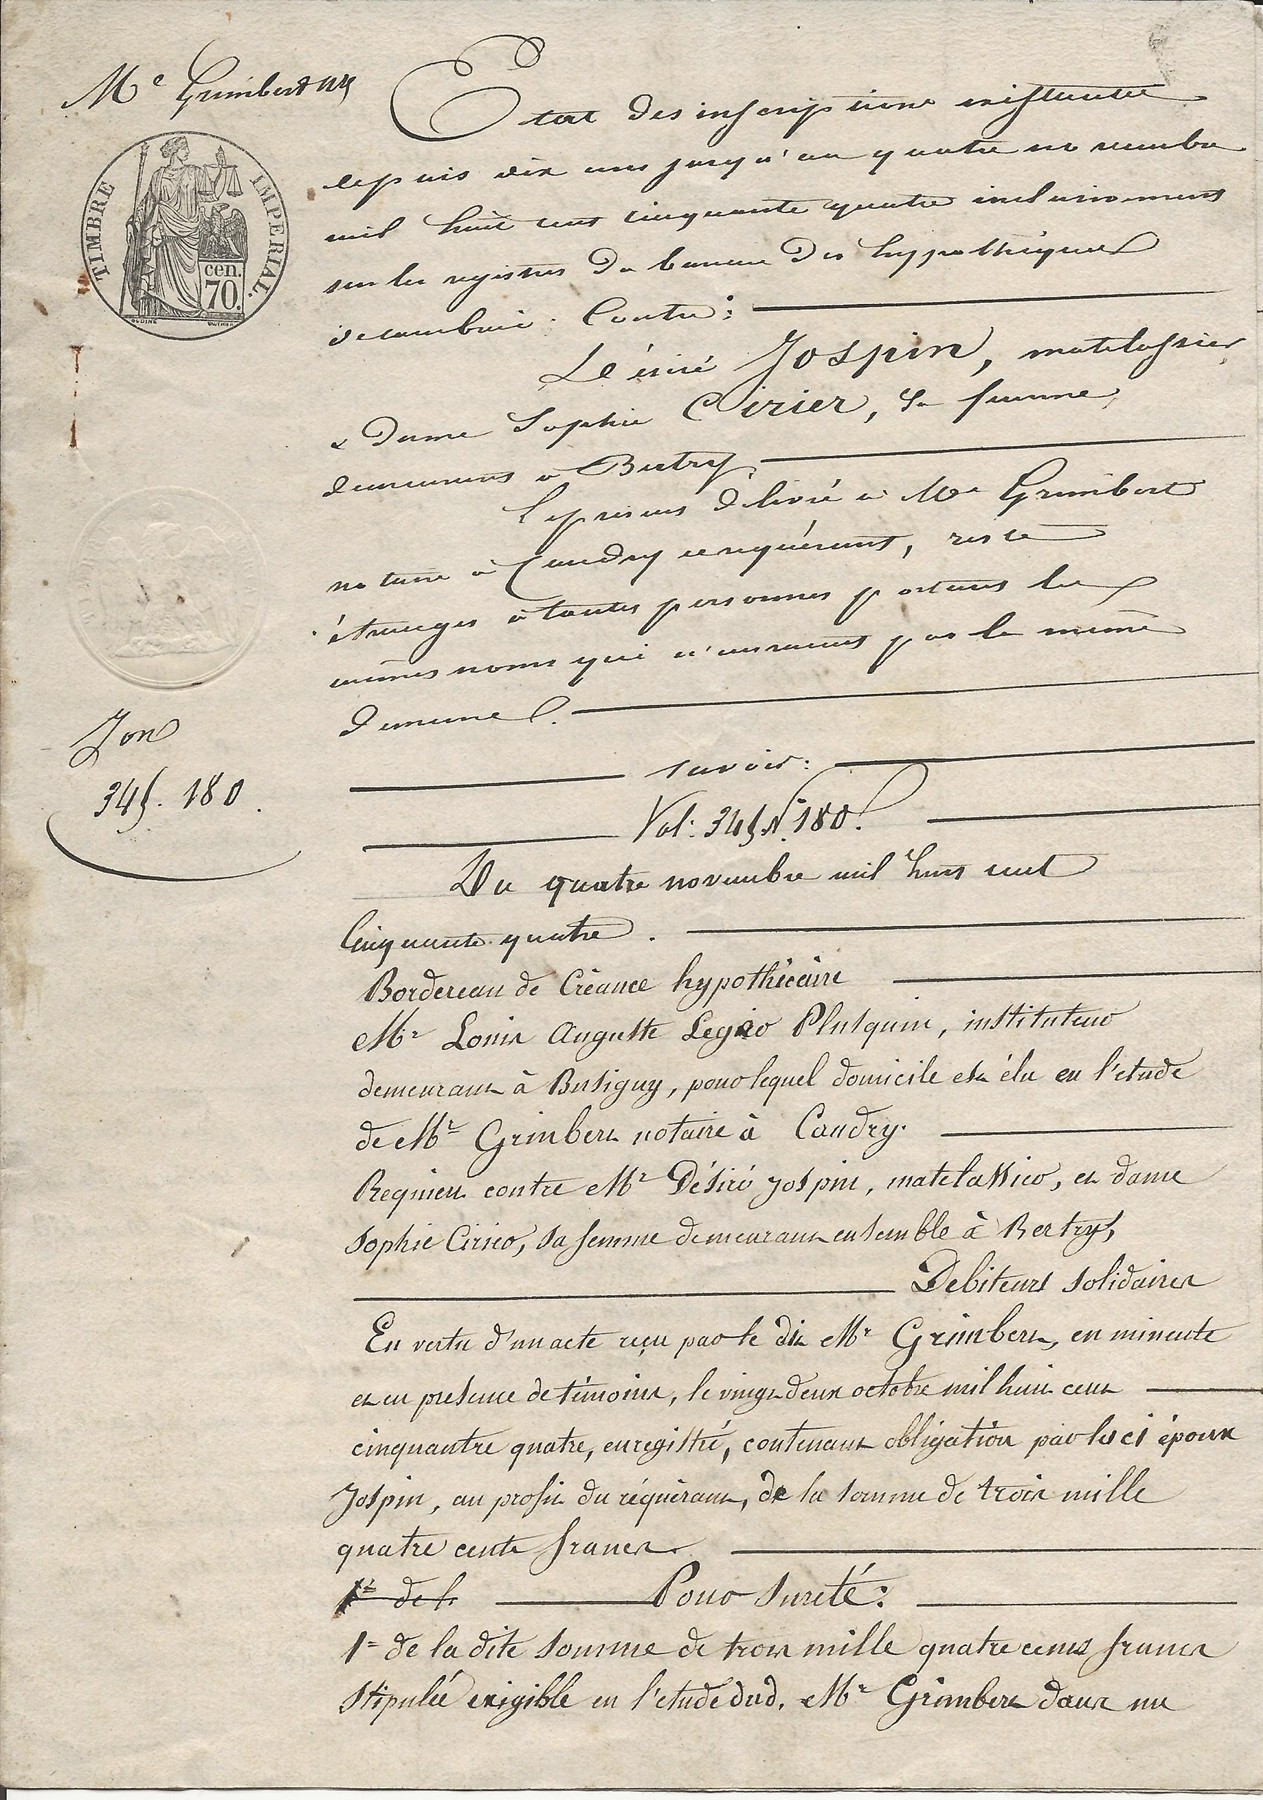 Me Grimbert
TIMBRE IMPERIAL.
cen.
70.
Etat des inscriptions existantes
depuis dix ans jusqu'au quatre novembre
mil huit cent cinquante quatre inclusivement
sur les registres du bureau des hypothèques
de Cambrai. Contre:
Désiré Jospin, matelassier
& Dame Sophie Cirier, sa femme,
demeurant à Bertry
Le présent délivré à Me Grimbert
notaire à Caudry ce requérant, reste
étranger à toutes personnes portant les
mêmes noms qui n'auraient pas la même
demeure.
savoir:
Jon
345. 180.
Vol. 345 N° 180.
Du quatre novembre mil huit cent
Cinquante quatre.
Bordereau de Créance hypothécaire
Mr Louis Auguste Plusquin, instituteur
demeurant à Busigny, pour lequel domicile est élu en l'etude
de Mr Grimbert notaire à Caudry.
Requiert contre Mr Désiré Jospin, matelassier, et dame
Sophie Cirier, sa femme demeurant ensemble à Bertry,
Debiteurs solidaires
En vertu d'un acte reçu par le dit Mr Grimbert, en minute
et en presence de témoins, le vingt deux octobre mil huit cent
cinquantre quatre, enregistré, contenant obligation par les ci époux
Jospin, au profit du réquérant, de la somme de trois mille
quatre cents francs.
1° de l.
Pour Sureté:
1° de la dite somme de trois mille quatre cents francs
Stipulée exigible en l'etude dud. Mr Grimbert dans un